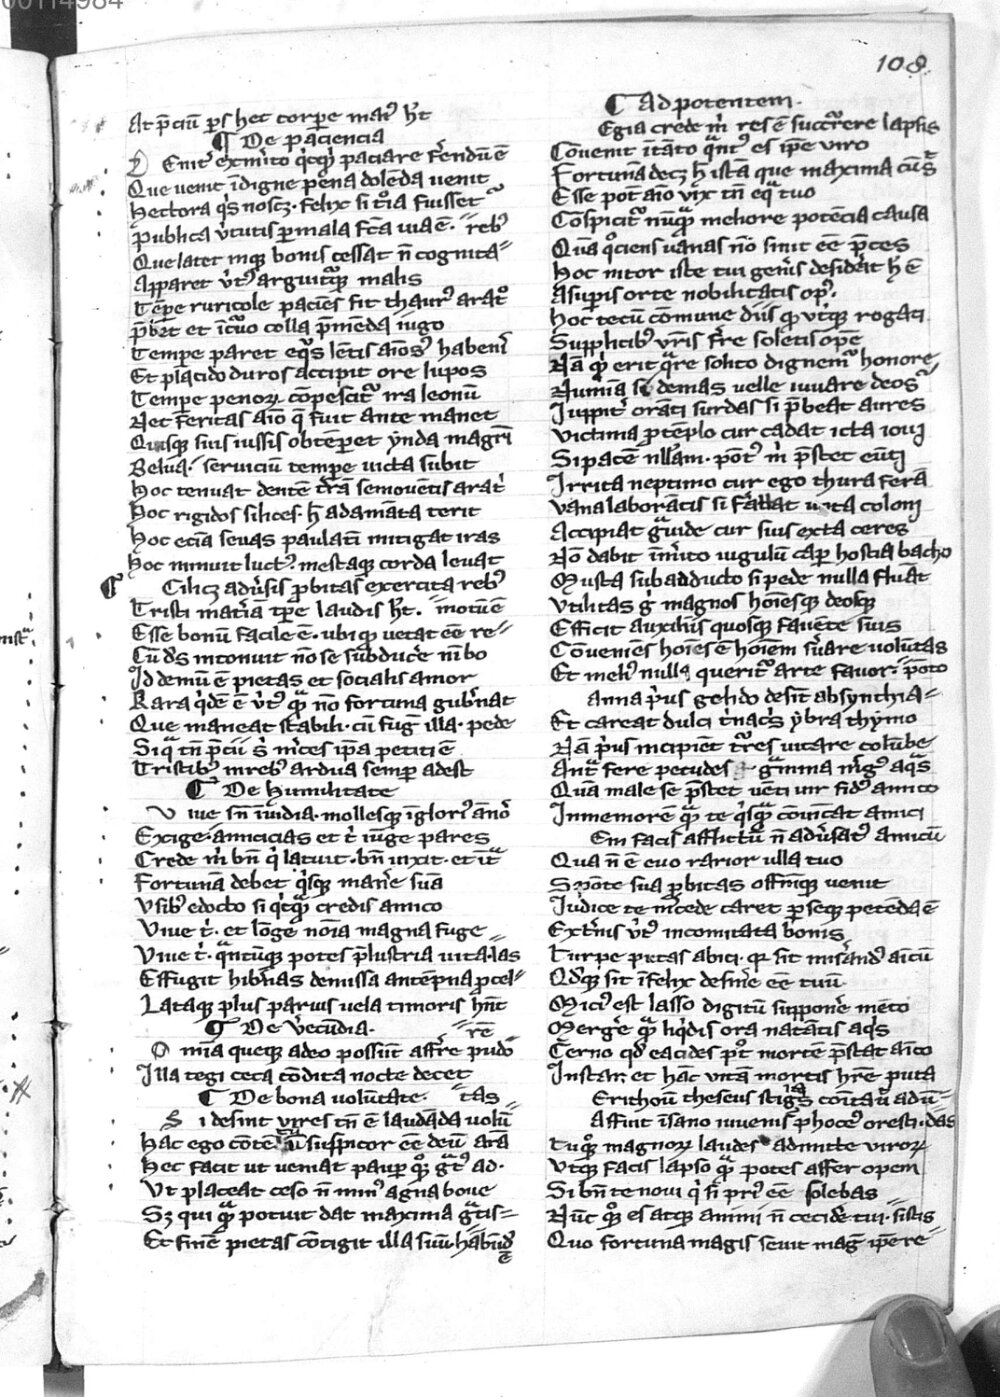 00114984
108
At p̄ciū ꝑs hec corꝑe mai᷒ h̄t
¶ De paciencia
Que uenit īdigne pena dolēda uenit
Hectora q͛s noscꝫ felix si t͛oia fuisset
Publica ūtutis ꝑ mala fc̄a uia ē. reb᷒
Que latet inqꝫ bonis cessat n̄ cognita
Apparet ūt᷒ arguit᷑qꝫ malis
Tēꝑe ruricole paciēs fit thaur᷒ arat͛
p̄bet et īcuo colla p̄mēda iugo
Temꝑe paret eq᷒s lētis aīos᷒ habenis
Et placido duros accipit ore lupos
Temꝑe penoꝝ cōpescit᷑ ira leonū
Nec feritas aīo q̄ fuit ante manet
Quisqꝫ suis iussis obtēꝑet ynda magr̄i
Belua seruiciū temꝑe uicta subit
Hoc tenuat dentē t͛rā semouētis arat͛
Hoc rigidos silices. h̄ adamāta terit
Hoc eciā seuas paulatī mitigat iras
Hoc minuit luct᷒ mestaqꝫ corda leuat
¶ Scilicꝫ adūsis ꝓbitas exercita reb᷒
Tristi mat͛iā tꝑe laudis h̄t. motū ē
Esse bonū facile ē. ubi qꝫ uetat eē re
Cū d͛s intonuit nō se subduce͛ nībo
Id demū ē pietas et socialis amor
Rara q͛dē ē ūt᷒ q̄ nō fortuna gub͛nat
Que maneat stabili cū fug̅ illa pede
Siq̄ tn̄ p̄ciū s͛ m͛ces ip̄a petiti ē
Tristib᷒ inreb᷒ ardua semꝑ adest
¶ De humilitate
Viue sn̄ īuidia mollesqꝫ īglori᷒ ānos
Exige amicicias et t͛ iūge pares
Crede m͛ bn̄ q͛ latuit. bn̄ uixit. et īt͛
Fortunā debet q͛sqꝫ mane͛ suā
Vsib᷒ edocto si q͛cq̄ credis amico
Viue t͛. et lōge nōia magna fuge
Viue t͛. q̄ntūqꝫ potes p̄lustria uita las
Effugit hib͛nas demissa antēpna ꝓcel
Lataqꝫ plus paruis uela timoris hn̄t
¶ De ūecūdia. re
Omīa queqꝫ adeo possunt affr̄e pudo
Illa tegi ceca cōdita nocte decet
¶ De bona uolūtate. tas
Si desint uires tn̄ ē laudāda uolū
Hac ego cōtē suspicor eē deū ara
Hec facit ut ueniat pauꝑ qꝫ g͛t᷒ ad.
Vt placeat ceso n̄ min᷒ agna boue
Sꝫ qui q̄ potuit dat maxima g͛tis
Et sine pietas cōtigit illa suū habūde
¶ Ad potentem.
Regia crede m͛ res ē succ͛rere lapsis
Cōuenit ītāto q̄nt᷒ es ip̄e uiro
Fortunā decꝫ h̄ istā que maxima cūs
Esse pot̄ aīo uix tn̄ eq̄ tuo
Cōspicit᷑ nūq̄ meliore potēcia causa
Quā q͛ciens uanas nō sinit eē p̄ces
Hoc nitor iste tui gen͛is desid͛at h̄ ē
Asuꝑis orte nobilitatis op᷒.
Hoc tecū comune diis qꝫ ut͛qꝫ rogati
Supplicib᷒ ur̄is fr̄e soletis opē
Nā qꝫ erit q̄re solito dignem᷑ honore
Numīa si demas uelle iuuare deos
Iuppit͛ orāti surdas si p̄beat aures
Victima ꝓtēplo cur cadat icta iouis
Si pacē nllām pōt᷒ m͛ p̄stet eūti
Irrita neptuno cur ego thura ferā
Vana laborātis si fallat uota coloni
Accipiat g͛uide cur suis exta ceres
Nō dabit īm͛ito iugulū caꝑ hostia bacho
Musta sub adducto si pede nulla fluāt
Vtilitas g͛ magnos hoīesqꝫ deosqꝫ
Efficit auxiliis quosqꝫ fauēte suis
Cōueniēs hoīes ē hoīem s͛uare uolūtas
Et meli᷒ nulla querit᷑ arte fauor. pōto
anna p͛us gelido desīt absynthia
Et careat dulci t͛nac͛s ybra thymo
Nā p͛us incipiēt t͛res uitare colūbe
Ant͛ fere pecudes gīmina m͛g᷒ aq͛s
Quā male se p̄stet uēti uir fid᷒ amico
Inmemorē q̄ te q͛sq̄ cōuīcat amici
Em facis afflictū n̄ adūsat᷒ amicū
Qua n̄ ē euo rarior illa tuo
Spōte sua ꝓbitas offīmqꝫ uenit
Iudice te m͛cede caret ꝑ seqꝫ petēda ē
Ext͛nis ūt᷒ incomitata bonis
Turpe putas abici. qꝫ sit mis͛and᷒ aīcū
Qd͛qꝫ sit īfelix desine͛ eē tuū
Mici᷒ est lasso digitū suppone͛ mēto
Merge͛ q̄ liq͛dis ora natātis aq͛s
Cerno qd̄ eacides p᷒t mortē p̄stat aīco
Instar et hāc uitā mortis hr̄e puta
Perithou theseus stigias comitau᷑ adū
Affuit īsano iuuenis phoce᷒ oresti das
Tu qꝫ magnoꝝ laudes admitte uiroꝝ
Vtqꝫ facis lapso q̄ potes affer opem
Si bn̄ te noui q͛ si pri᷒ eē solebas
Nūc qꝫ es atqꝫ animi n̄ cecide͛ tui. sistis
Quo fortuna magis seuit mag̅ ip̄e re